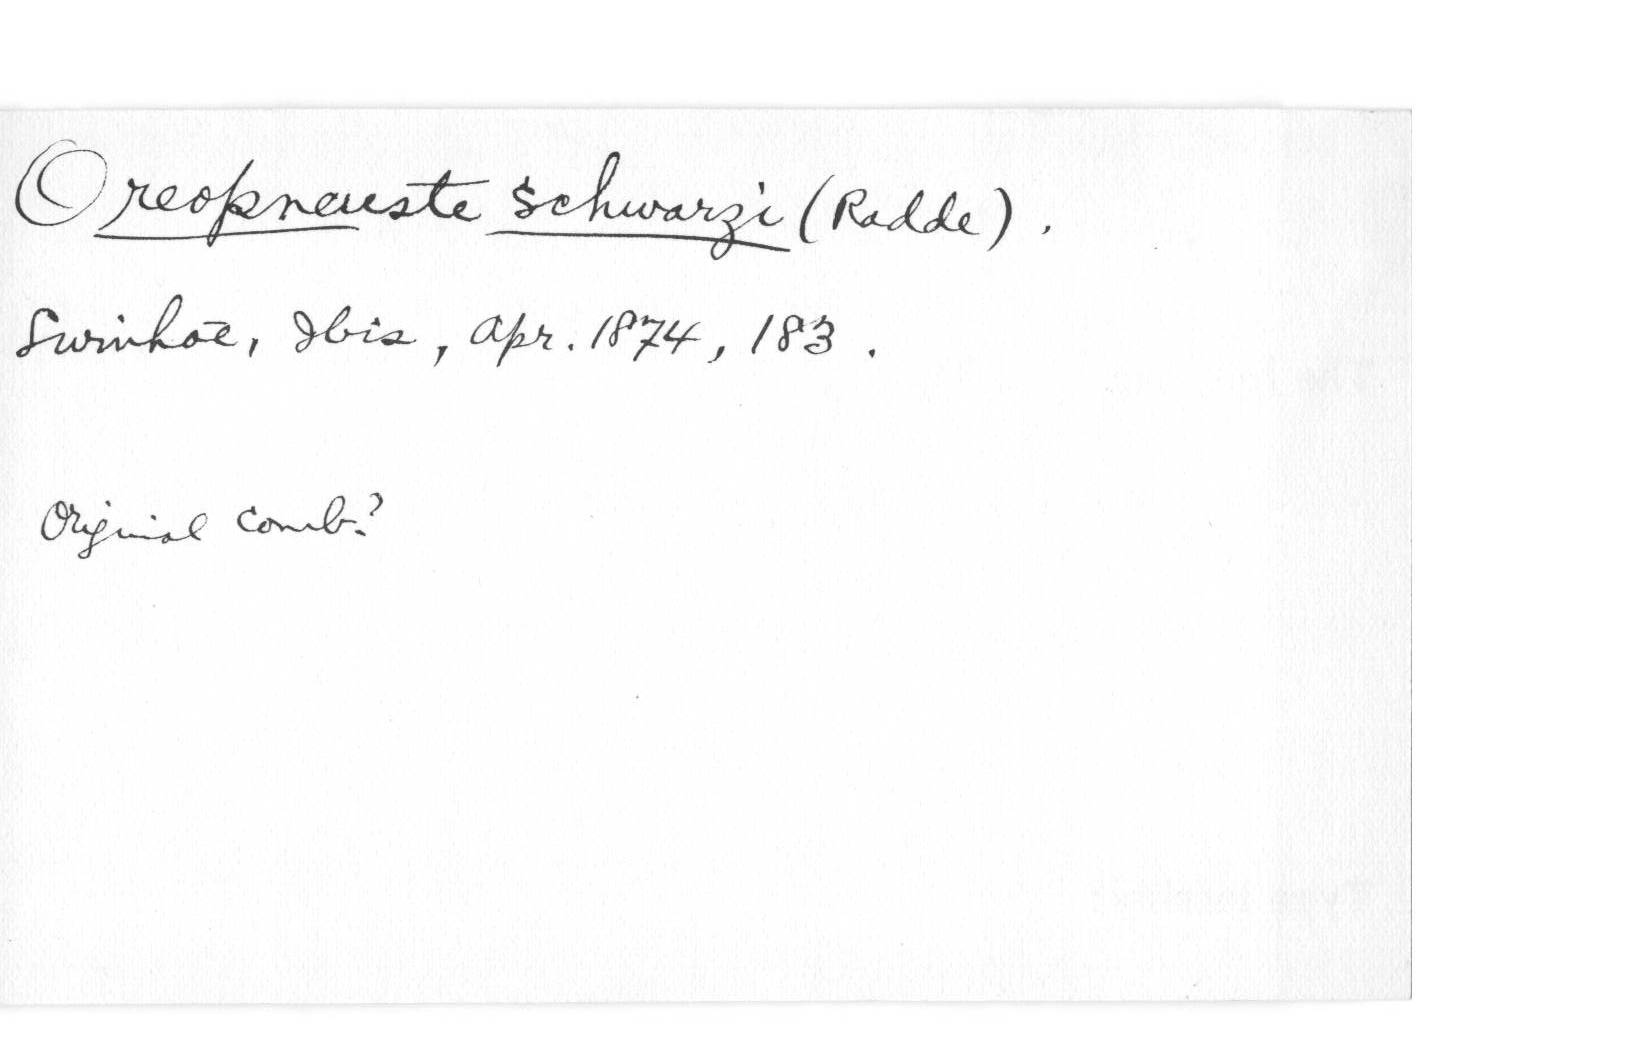 Oreopneuste schwarzi (Radde).
Swinhoe, Ibis, Apr. 1874, 183.
Original Comb.?